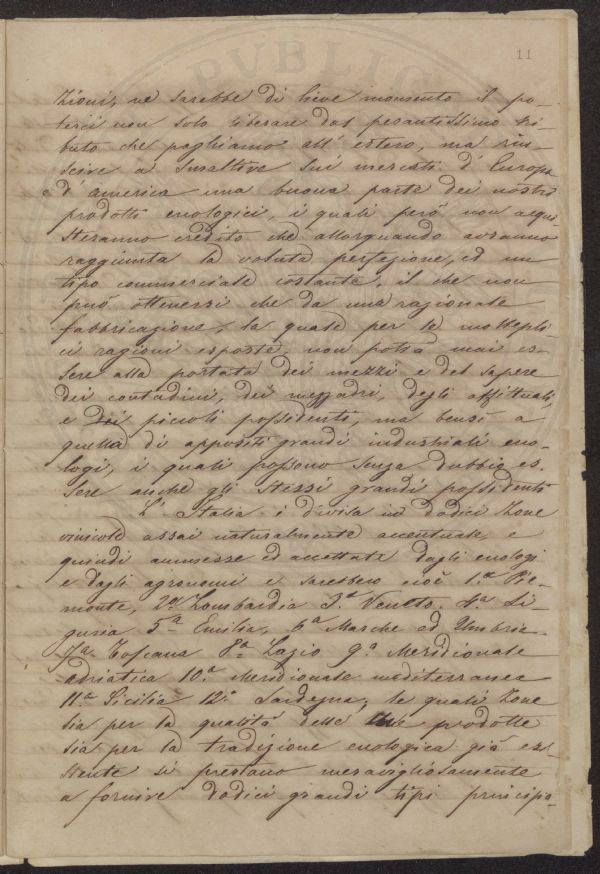 PVBLIC
11
zioni, nè sarebbe di lieve momento il po-
terci non solo liberare dal pesantissimo tri-
buto che paghiamo all' estero, ma rius-
cire a sui mercati d' Europa
e d' america una buona parte dei nostri
prodotti enologici, i quali però non acqui-
steranno credito che allorquando avranno
raggiunta la voluta perfezione, ed un
tipo commerciale costante, il che non
può ottenersi che da una razionale
fabbricazione, la quale per le moltepli-
ci ragioni esposte, non potrà mai es-
sere alla portata dei mezzi e del sapere
dei contadini, dei mezzadri, degli affittuali,
e dei piccoli possidenti, ma bensì a
quella di appositi grandi industriali eno-
logi, i quali possono senza dubbio es-
sere anche gli stessi grandi possidenti
L' Italia è divisa in dodici Zone
vinicole assai naturalmente accentuate, e
quindi ammesse ed accettate dagli enologi
e dagli agronomi e sarebbero cioè 1.a Pie-
monte, 2a Lombardia 3.a Veneto. 4.a Li-
guria 5a Emilia, 6a Marche ed Umbrie-
7a Toscana 8a Lazio 9.a Meridionale
adriatica 10.a Meridionale mediterranea
11.a Sicilia 12.a Sardegna; le quali Zone
sia per la qualità delle uve prodotte
sia per la tradizione enologica già esi-
stente si prestano meravigliosamente
a fornire dodici grandi tipi principa-